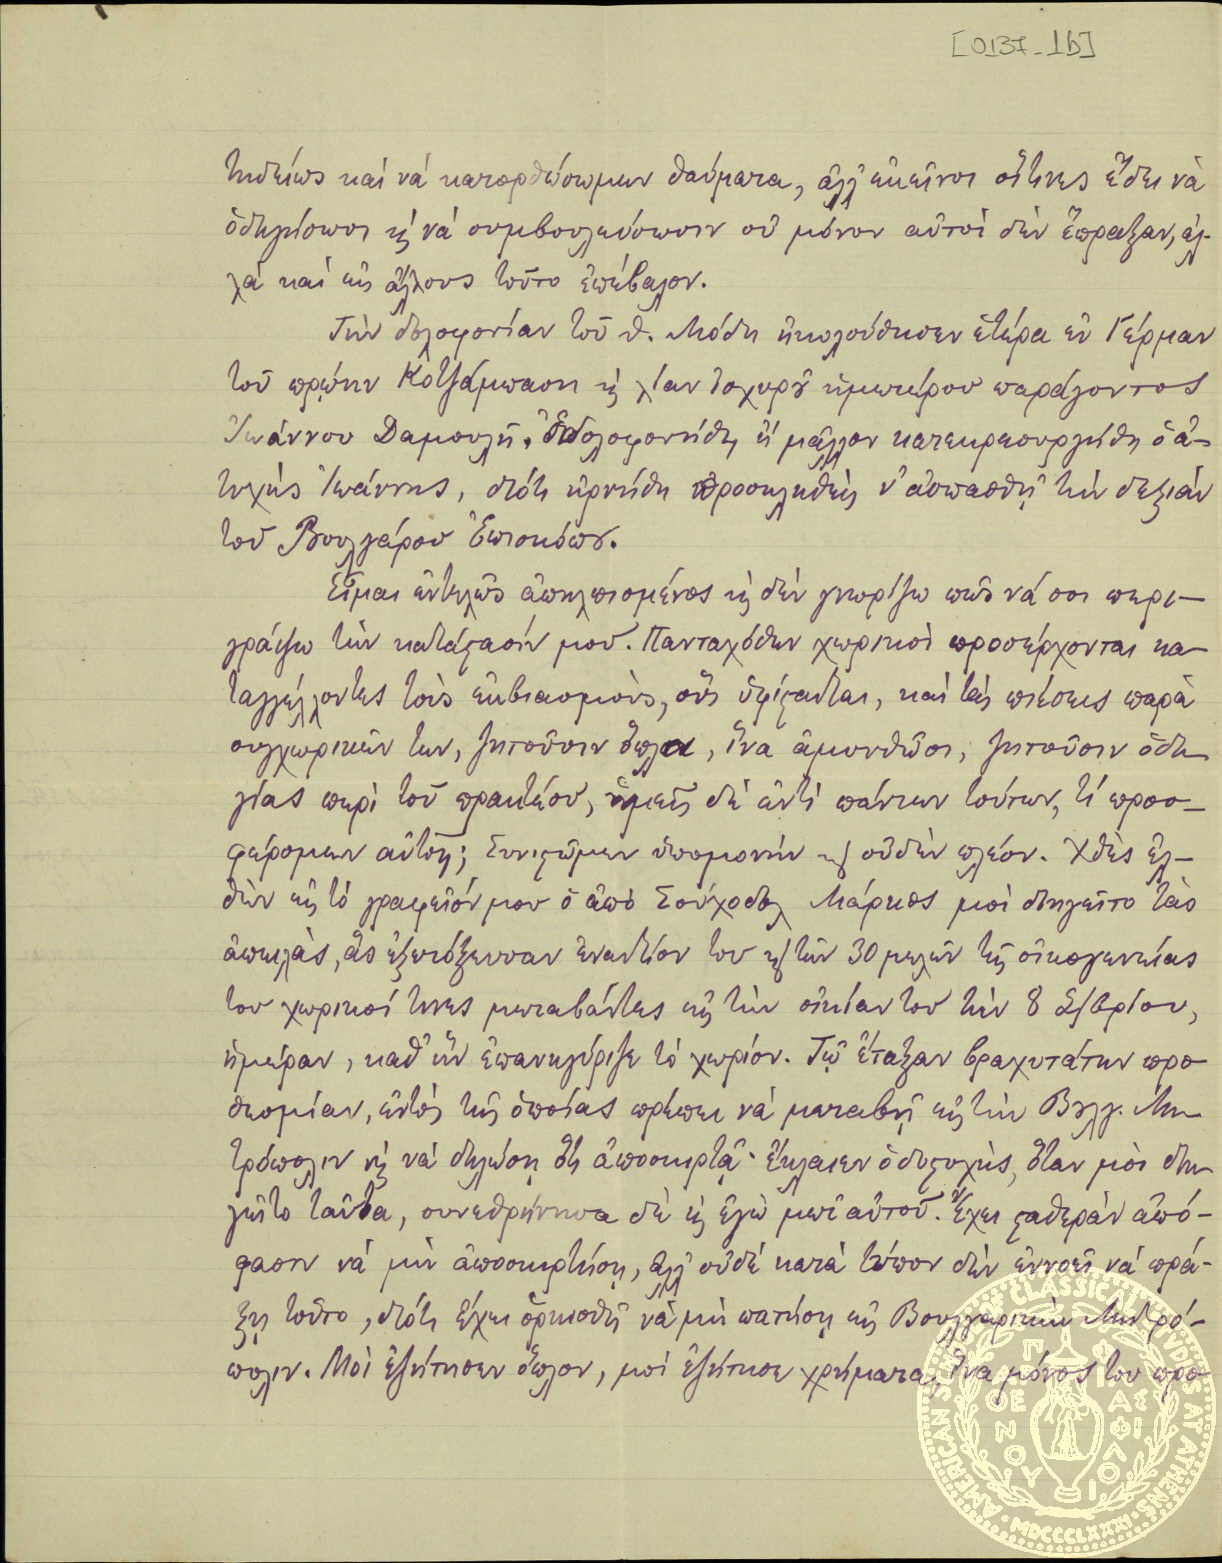 [0137-1b]
τηδείως καί νά κατορθώσωμεν θαύματα, ἀλλ' ἐκεῖνοι οἵτινες ἔδει νὰ
ὁδηγήσωσι κ νά συμβουλεύσωσιν οὐ μόνον αὐτοί δέν ἔπραξαν, ἀλ-
λά καί εἰς ἄλλους τοῦτο ἐπέβαλον.
Τήν δολοφονίαν τοῦ Θ. Μόδη ἠκολούθησεν ἑτέρα ἐν Γέρμαν
τοῦ πρώην Κοτζάμπαση κ λίαν ἰσχυροῦ ἡμετέρου παράγοντος
Ἰωάννου Δαμουλῆ. Ἐδολοφονήθη ἤ μᾶλλον κατεκρεουργήθη ὁ ἀ-
τυχής Ἰωάννης, διότι ἠρνήθη προσκληθείς ν' ἀσπασθῇ τήν δεξιάν
τοῦ Βουλγάρου Ἐπισκόπου.
Εἶμαι ἐντελῶς ἀπηλπισμένος κ δέν γνωρίζω πῶς νά σοι περι-
γράψω τήν κατάστασίν μου. Πανταχόθεν χωρικοί προσέρχονται κα-
ταγγέλλοντες τούς ἐκβιασμούς, οὕς ὑφίστανται, καί τάς πιέσεις παρὰ
συγχωρικῶν των, ζητοῦσιν ὅπλα, ἵνα ἀμυνθῶσι, ζητοῦσιν ὁδη-
γίας περί τοῦ πρακτέου, ἡμεῖς δέ ἀντί πάντων τούτων, τί προσ-
φέρομεν αὐτοῖς; Συνιστῶμεν ὑπομονήν κ οὐδέν πλέον. Χθές ἐλ-
θών εἰς τό γραφεῖόν μου ὁ ἀπό Σούχοδολ Μάρκος μοί διηγεῖτο τάς
ἀπειλάς, ἅς ἐξετόξευσαν ἐναντίον του κ τῶν 30 μελῶν τῆς οἰκογενείας
του χωρικοί τινες μεταβάντες εἰς τήν οἰκίαν του τήν 8 Σ/βρίου,
ἡμέραν, καθ' ἥν ἐπανηγύριζε τό χωρίον. Τῷ ἔταξαν βραχυτάτην προ-
θεσμίαν, ἐντός τῆς ὁποίας πρέπει νά μεταβῇ εἰς τήν Βουλγ. Μη-
τρόπολιν κ νά δηλώσῃ ὅτι ἀποσκιρτᾷ· ἔκλαιεν ὁ δυστυχής, ὅταν μοι διη-
γεῖτο ταῦτα, συνεθρήνησα δέ κ ἐγώ μετ' αὐτοῦ. Ἔχει σταθεράν ἀπό-
φασιν νά μήν ἀποσκιρτήσῃ, ἀλλ' οὐδέ κατά τύπον δέν ἐννοεῖ νά πρά-
ξῃ τοῦτο, διότι ἔχει ὁρκισθῆ νά μή πατήσῃ εἰς Βουλγαρικήν Μητρό-
πολιν. Μοί ἐζήτησεν ὅπλον, μοί ἐζήτησε χρήματα, ἵνα μόνος του προ-
AMERICAN SCHOOL OF CLASSICAL STUDIES AT ATHENS
ΠΑΡΘΕΝΟΥ ΦΙΑΣ ΦΙΛΟΙ
MDCCCLXXXI